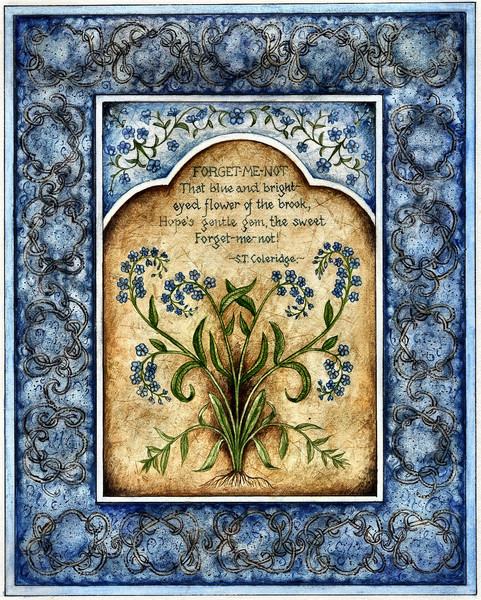 FORGET-ME-NOT
That blue and bright-
eyed flower of the brook,
Hope's gentle gem, the sweet
Forget-me-not!
~S.T. Coleridge.~